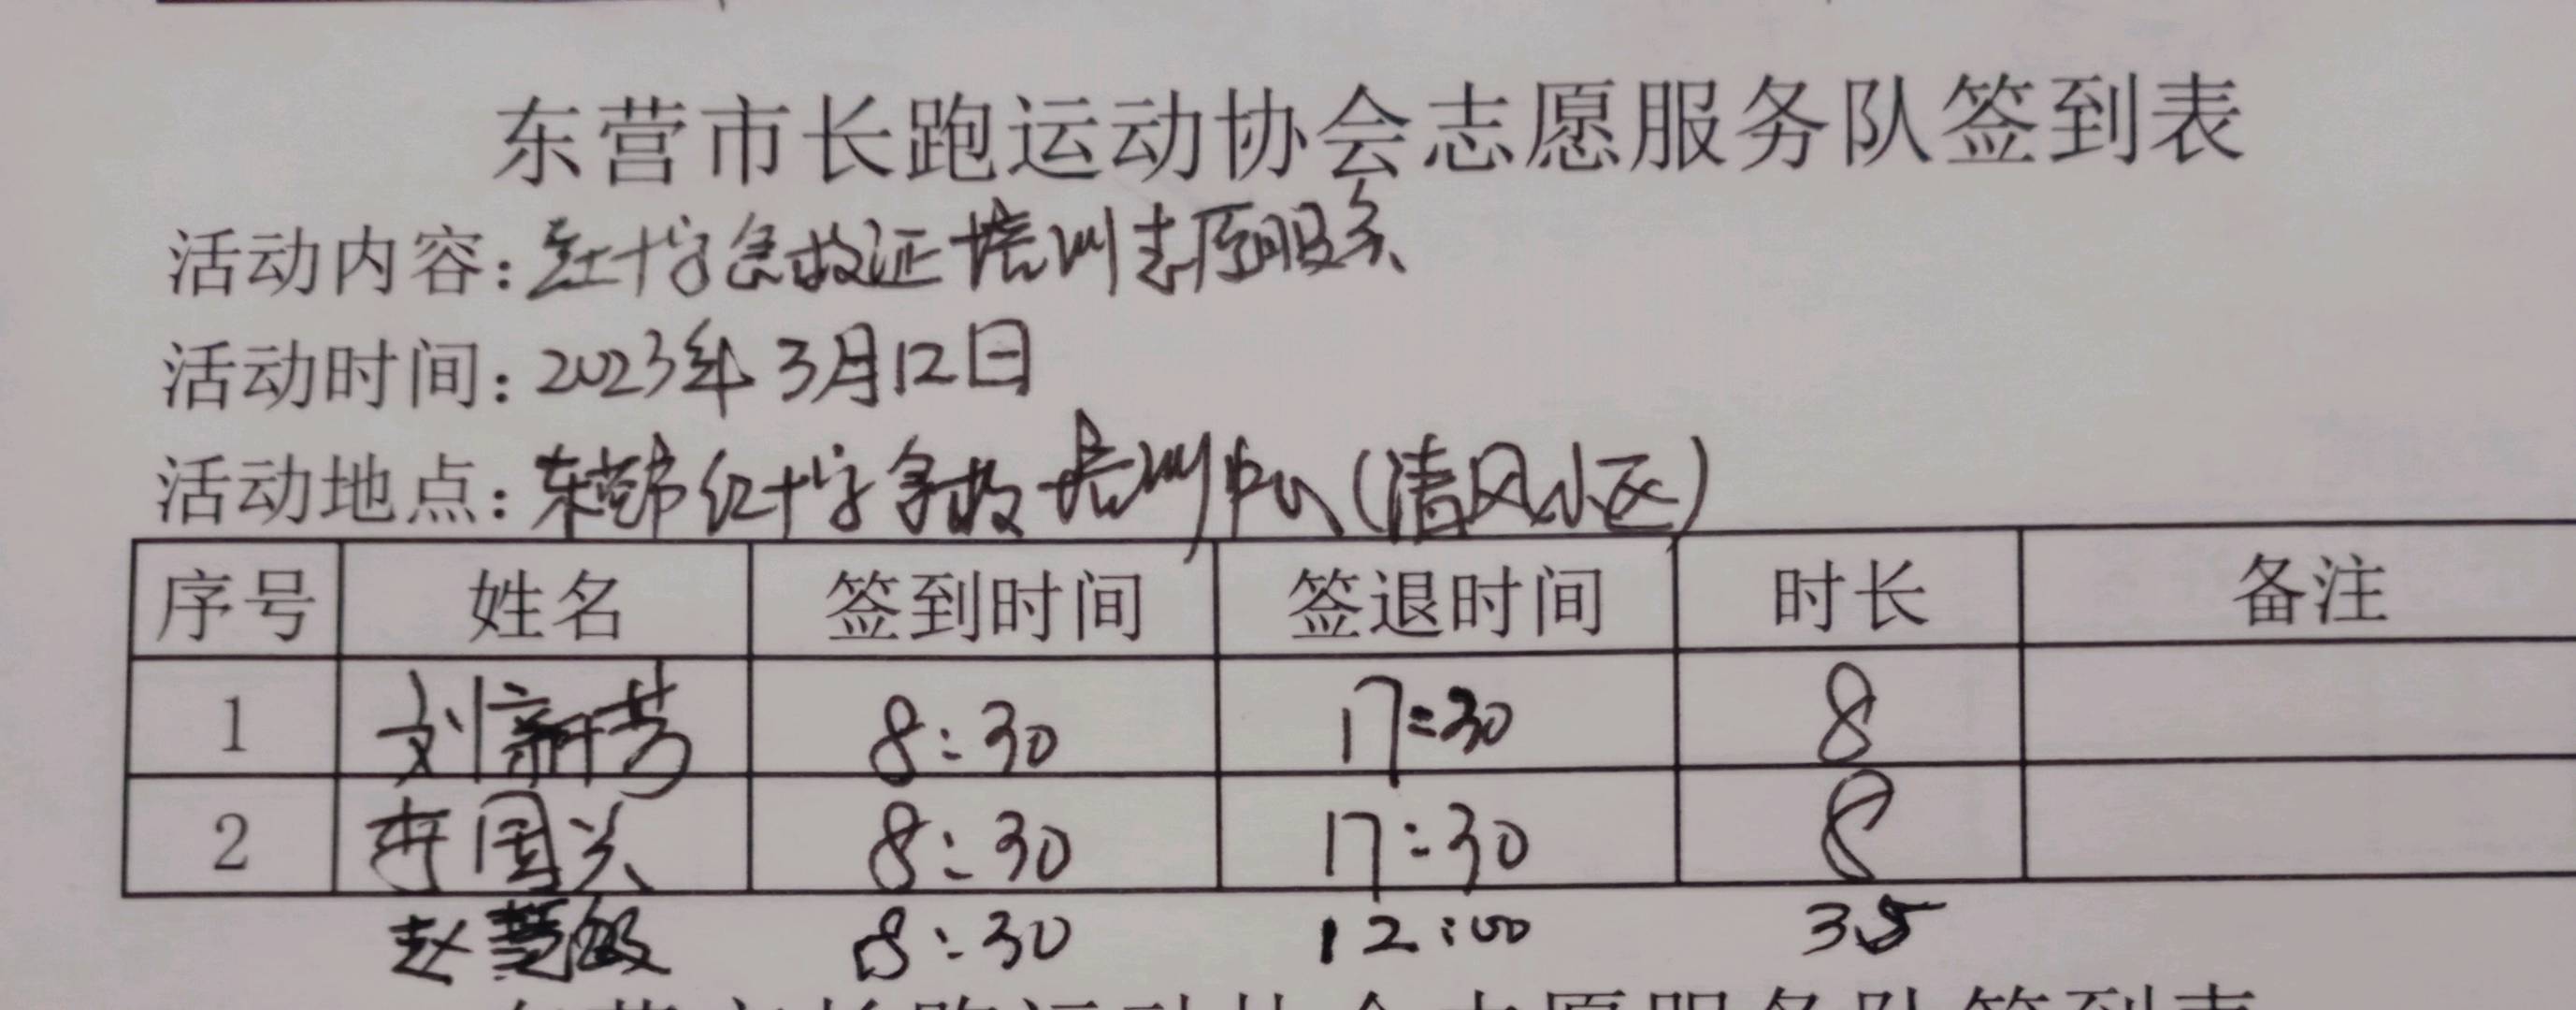 东营市长跑运动协会志愿服务队签到表
活动内容：红十字急救证培训志愿服务
活动时间：2023年3月12日
活动地点：东营市红十字急救培训中心（清风小区）
序号 姓名 签到时间 签退时间 时长 备注
1 刘新芳 8:30 17:30 8
2 李国兴 8:30 17:30 8
赵慧敏 8:30 12:00 3.5
东营市长跑运动协会志愿服务队签到表